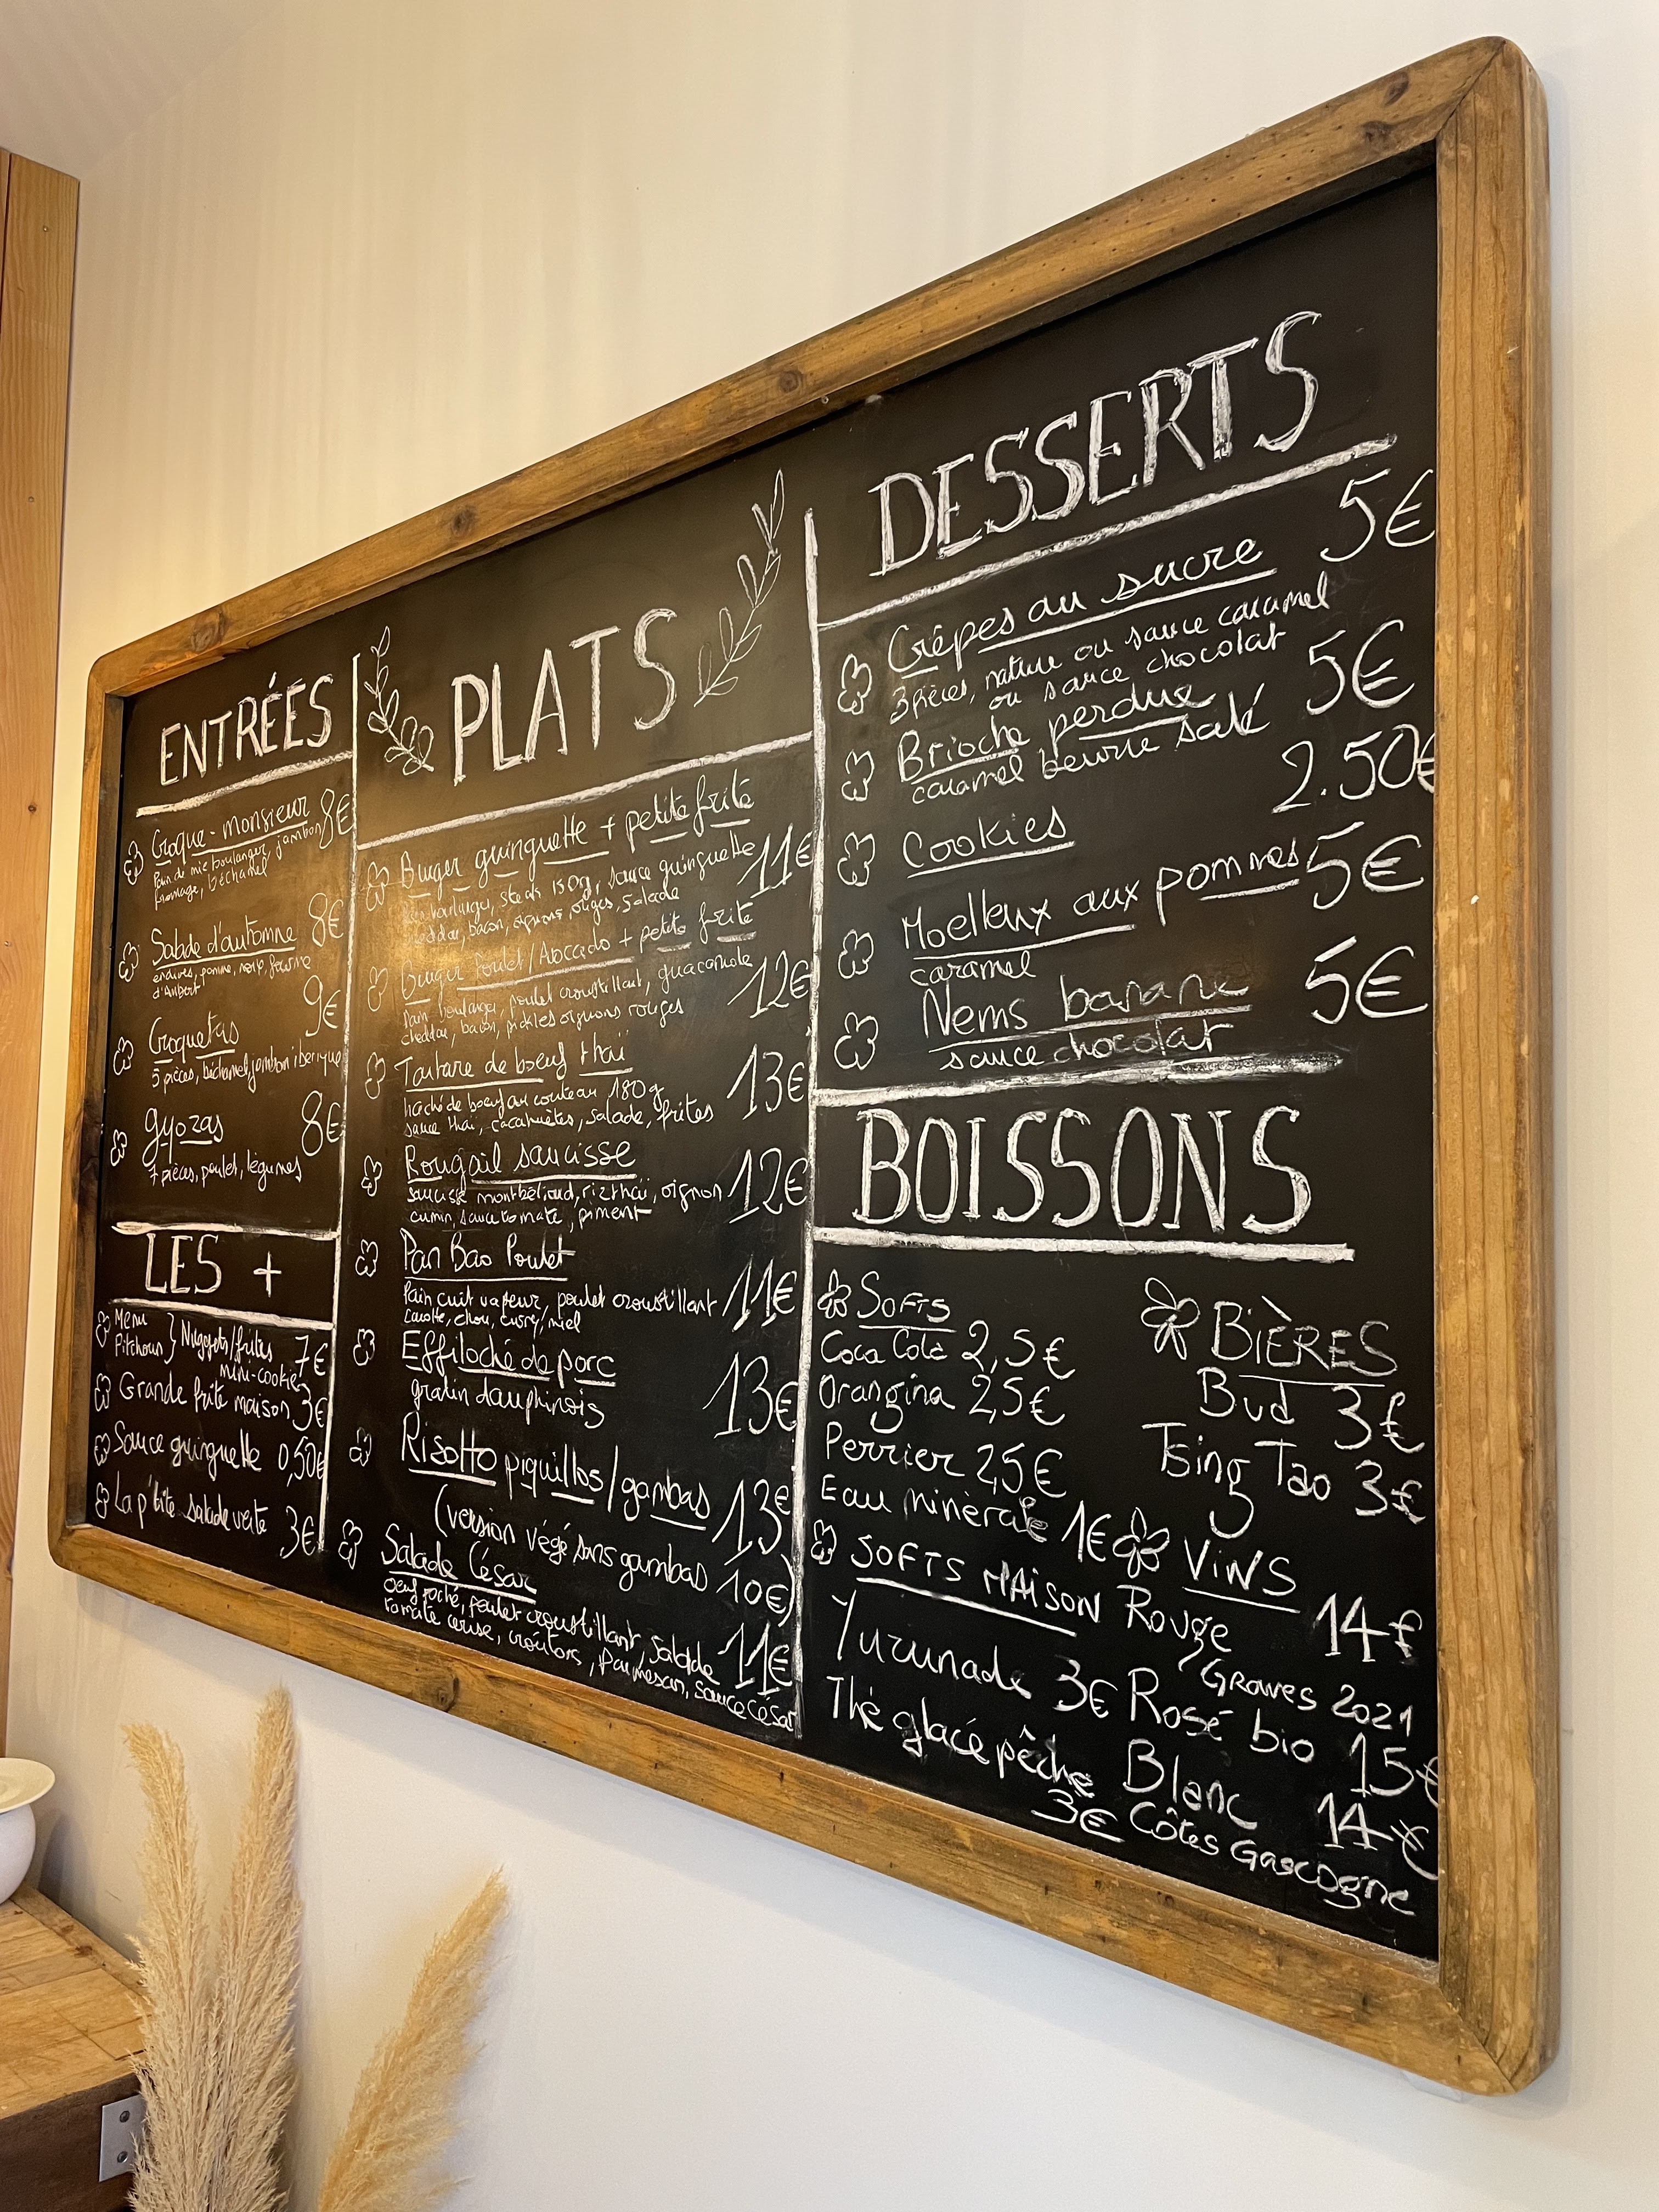 ENTRÉES
Croque-monsieur 8€
Pain de mie boulanger, jambon
fromage, béchamel
Salade d'automne 8€
endives, pomme, noix, fourme
d'Ambert
Croquetas 9€
5 pièces, béchamel, jambon iberique
gyozas 8€
7 pièces, poulet, légumes
LES +
Menu
Pitchoun } Nuggets/frites 7€
mini-cookie
Grande frite maison 3€
Sauce guinguette 0,50€
La p'tite salade verte 3€
PLATS
Burger guinguette + petite frite
Pain boulanger, steak 150g, sauce guinguette 11€
cheddar, bacon, oignons rouges, salade
Burger Poulet/Avocado + petite frite
Pain boulanger, poulet croustillant, guacamole 12€
cheddar, bacon, pickles oignons rouges
Tartare de boeuf thaï
haché de boeuf au couteau 180g 13€
sauce thaï, cacahuètes, salade, frites
Rougail saucisse
saucisse montbéliard, riz thaï, oignon 12€
cumin, sauce tomate, piment
Pan Bao Poulet
Pain cuit vapeur, poulet croustillant 11€
carotte, chou, curry, miel
Effiloché de porc
gratin dauphinois 13€
Risotto piquillos/gambas 13€
(version végé sans gambas 10€)
Salade César
oeuf poché, poulet croustillant, salade 11€
tomate cerise, croûtons, parmesan, sauce césar
DESSERTS
Crêpes au sucre 5€
3 pièces, nature ou sauce caramel
ou sauce chocolat
Brioche perdue 5€
caramel beurre salé
Cookies 2.50€
Moelleux aux pommes 5€
caramel
Nems banane 5€
sauce chocolat
BOISSONS
SOFTS
Coca Cola 2,5€
Orangina 2,5€
Perrier 2,5€
Eau minérale 1€
SOFTS MAISON
Yuzunade 3€
Thé glacé pêche
3€
BIÈRES
Bud 3€
Tsing Tao 3€
VINS
Rouge 14€
Graves 2021
Rosé bio 15€
Blanc 14€
Côtes Gascogne